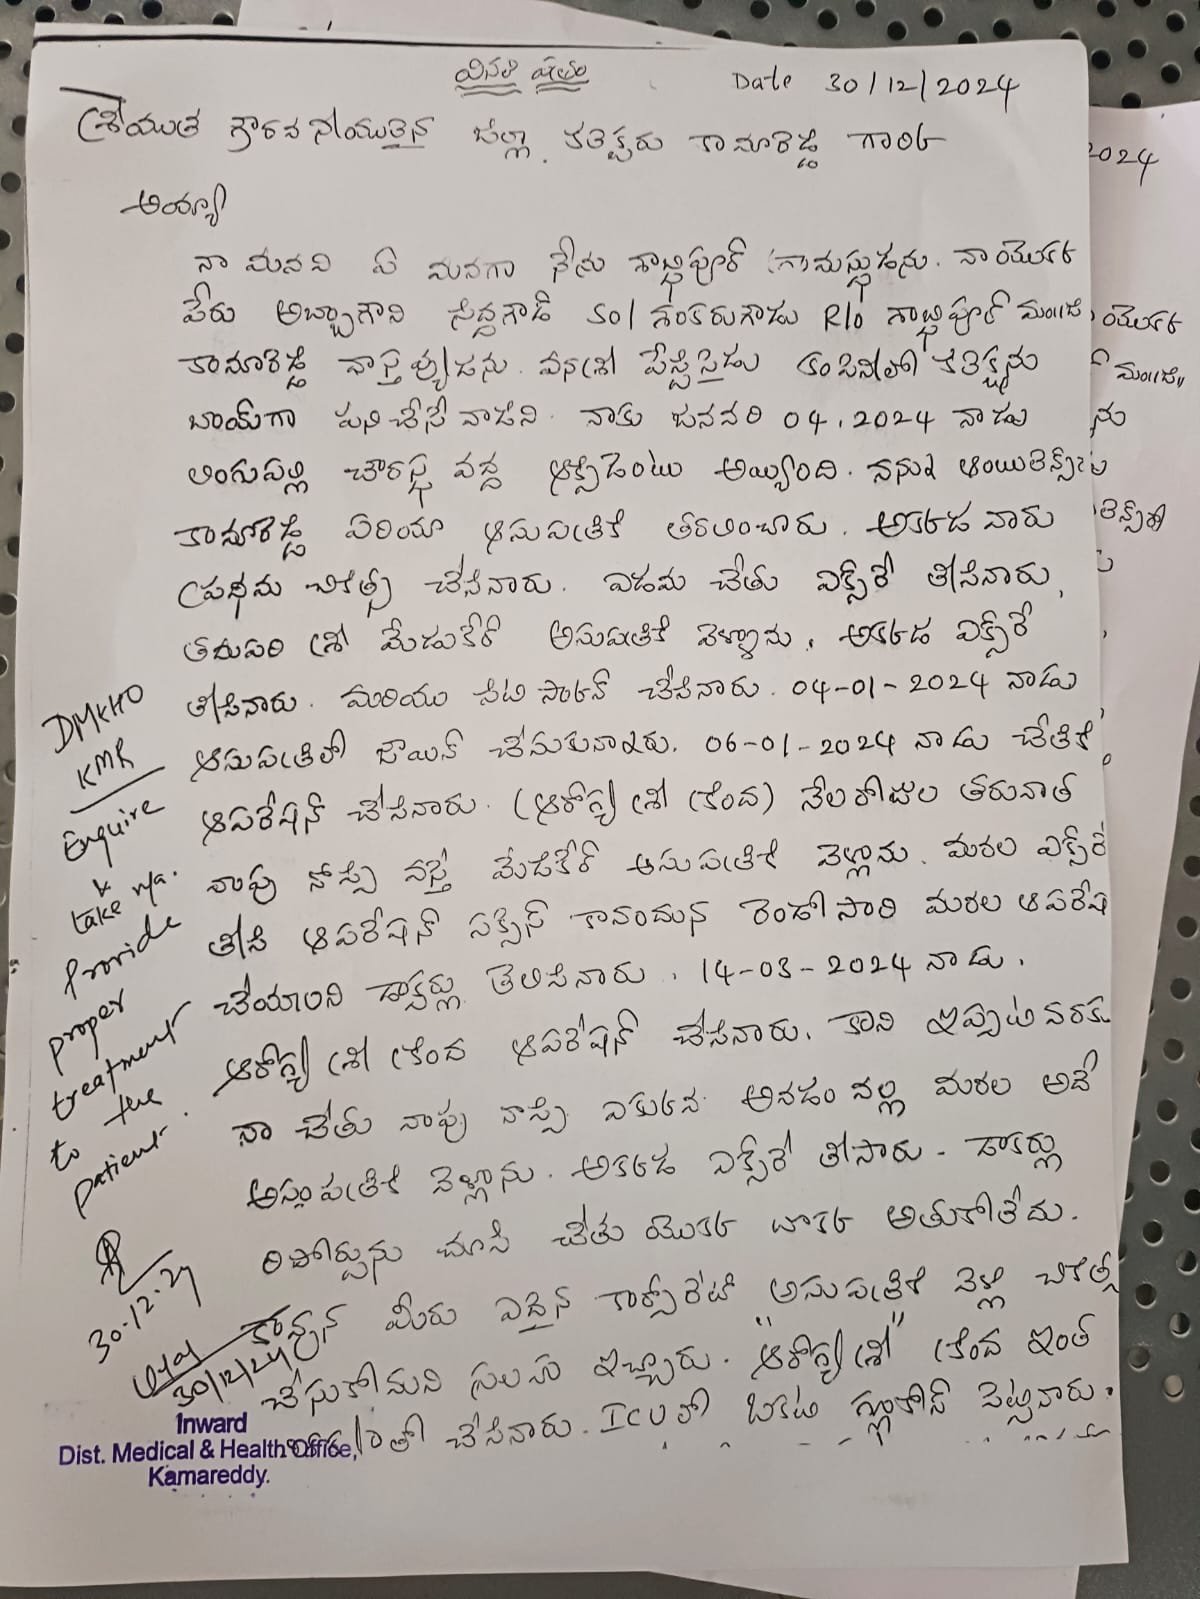 వినతి పత్రం
Date 30/12/2024
శ్రీయుత గౌరవనీయులైన జిల్లా కలెక్టరు కామారెడ్డి గారికి
అయ్యా
నా మనవి ఏ మనగా నేను శాబ్దిపూర్ గ్రామస్తుడను. నా యొక్క
పేరు అబ్బాగాని సిద్దగౌడ్ So/ శంకరుగౌడు R/o శాబ్దిపూర్ మం॥జి॥
కామారెడ్డి వాస్తవ్యుడను. వనశ్రీ పేస్టిసైడు కంపెనీలో కలెక్షను
బాయ్‌గా పని చేసే వాడిని. నాకు జనవరి 04.2024 నాడు
లింగుపల్లి చౌరస్త వద్ద ఆక్సిడెంటు అయ్యింది. నన్ను
కామారెడ్డి ఏరియా ఆసుపత్రికి తరలించారు. అక్కడ వారు
ప్రథమ చికిత్స చేసినారు. ఎడమ చేతు ఎక్స్‌రే తీసినారు,
తరువాత శ్రీ మేడుకేర్ ఆసుపత్రికి వెళ్ళాను. అక్కడ ఎక్స్‌రే
తీసినారు. మరియు సిటి స్కాన్ చేసినారు. 04-01-2024 నాడు
ఆసుపత్రిలో జాయిన్ చేసుకున్నారు. 06-01-2024 నాడు చేతికి
ఆపరేషన్ చేసినారు. (ఆరోగ్య శ్రీ క్రింద) నెల రోజుల తరువాత
వాపు నొప్పి వస్తే మేడికేర్ ఆసుపత్రికి వెళ్లాను. మరల ఎక్స్‌రే
తీసి ఆపరేషన్ సక్సెస్ కానందున రెండోసారి మరల ఆపరేష
చేయాలని డాక్టర్లు తెలిపినారు. 14-03-2024 నాడు.
ఆరోగ్య శ్రీ క్రింద ఆపరేషన్ చేసినారు. కాని ఇప్పటి వరకు
నా చేతు వాపు నొప్పి ఎక్కువ అవడం వల్ల మరల అదే
ఆసుపత్రికి వెళ్లాను. అక్కడ ఎక్స్‌రే తీసారు. డాక్టర్లు
రిపోర్టును చూసి చేతు యొక్క బొక్క అతుకోలేదు.
కావున మీరు ఎదైన కార్పోరేట్ ఆసుపత్రికి వెళ్లి చికిత్స
చేసుకోమని సలహ ఇచ్చారు. "ఆరోగ్య శ్రీ" క్రింద ఇంత
చేసినారు. ICU లో ఒకటి గ్లూకోస్ పెట్టినారు.
DM&HO
KMR
Enquire
&
take n/a.
Provide
proper
treatment
to the
patient.
30.12.24
30/12/24
Inward
Dist. Medical & Health Office,
Kamareddy.
2024
యొక్క
మం॥జి॥
ను